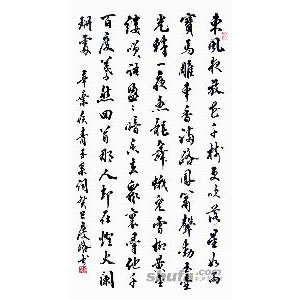 東風夜放花千樹更吹落星如雨
寶馬雕車香滿路鳳簫聲動玉壺
光轉一夜魚龍舞蛾兒雪柳黃金
縷笑語盈盈暗香去衆裏尋他千
百度驀然回首那人卻在燈火闌
珊處 辛棄疾青玉案詞癸巳
shufa.com